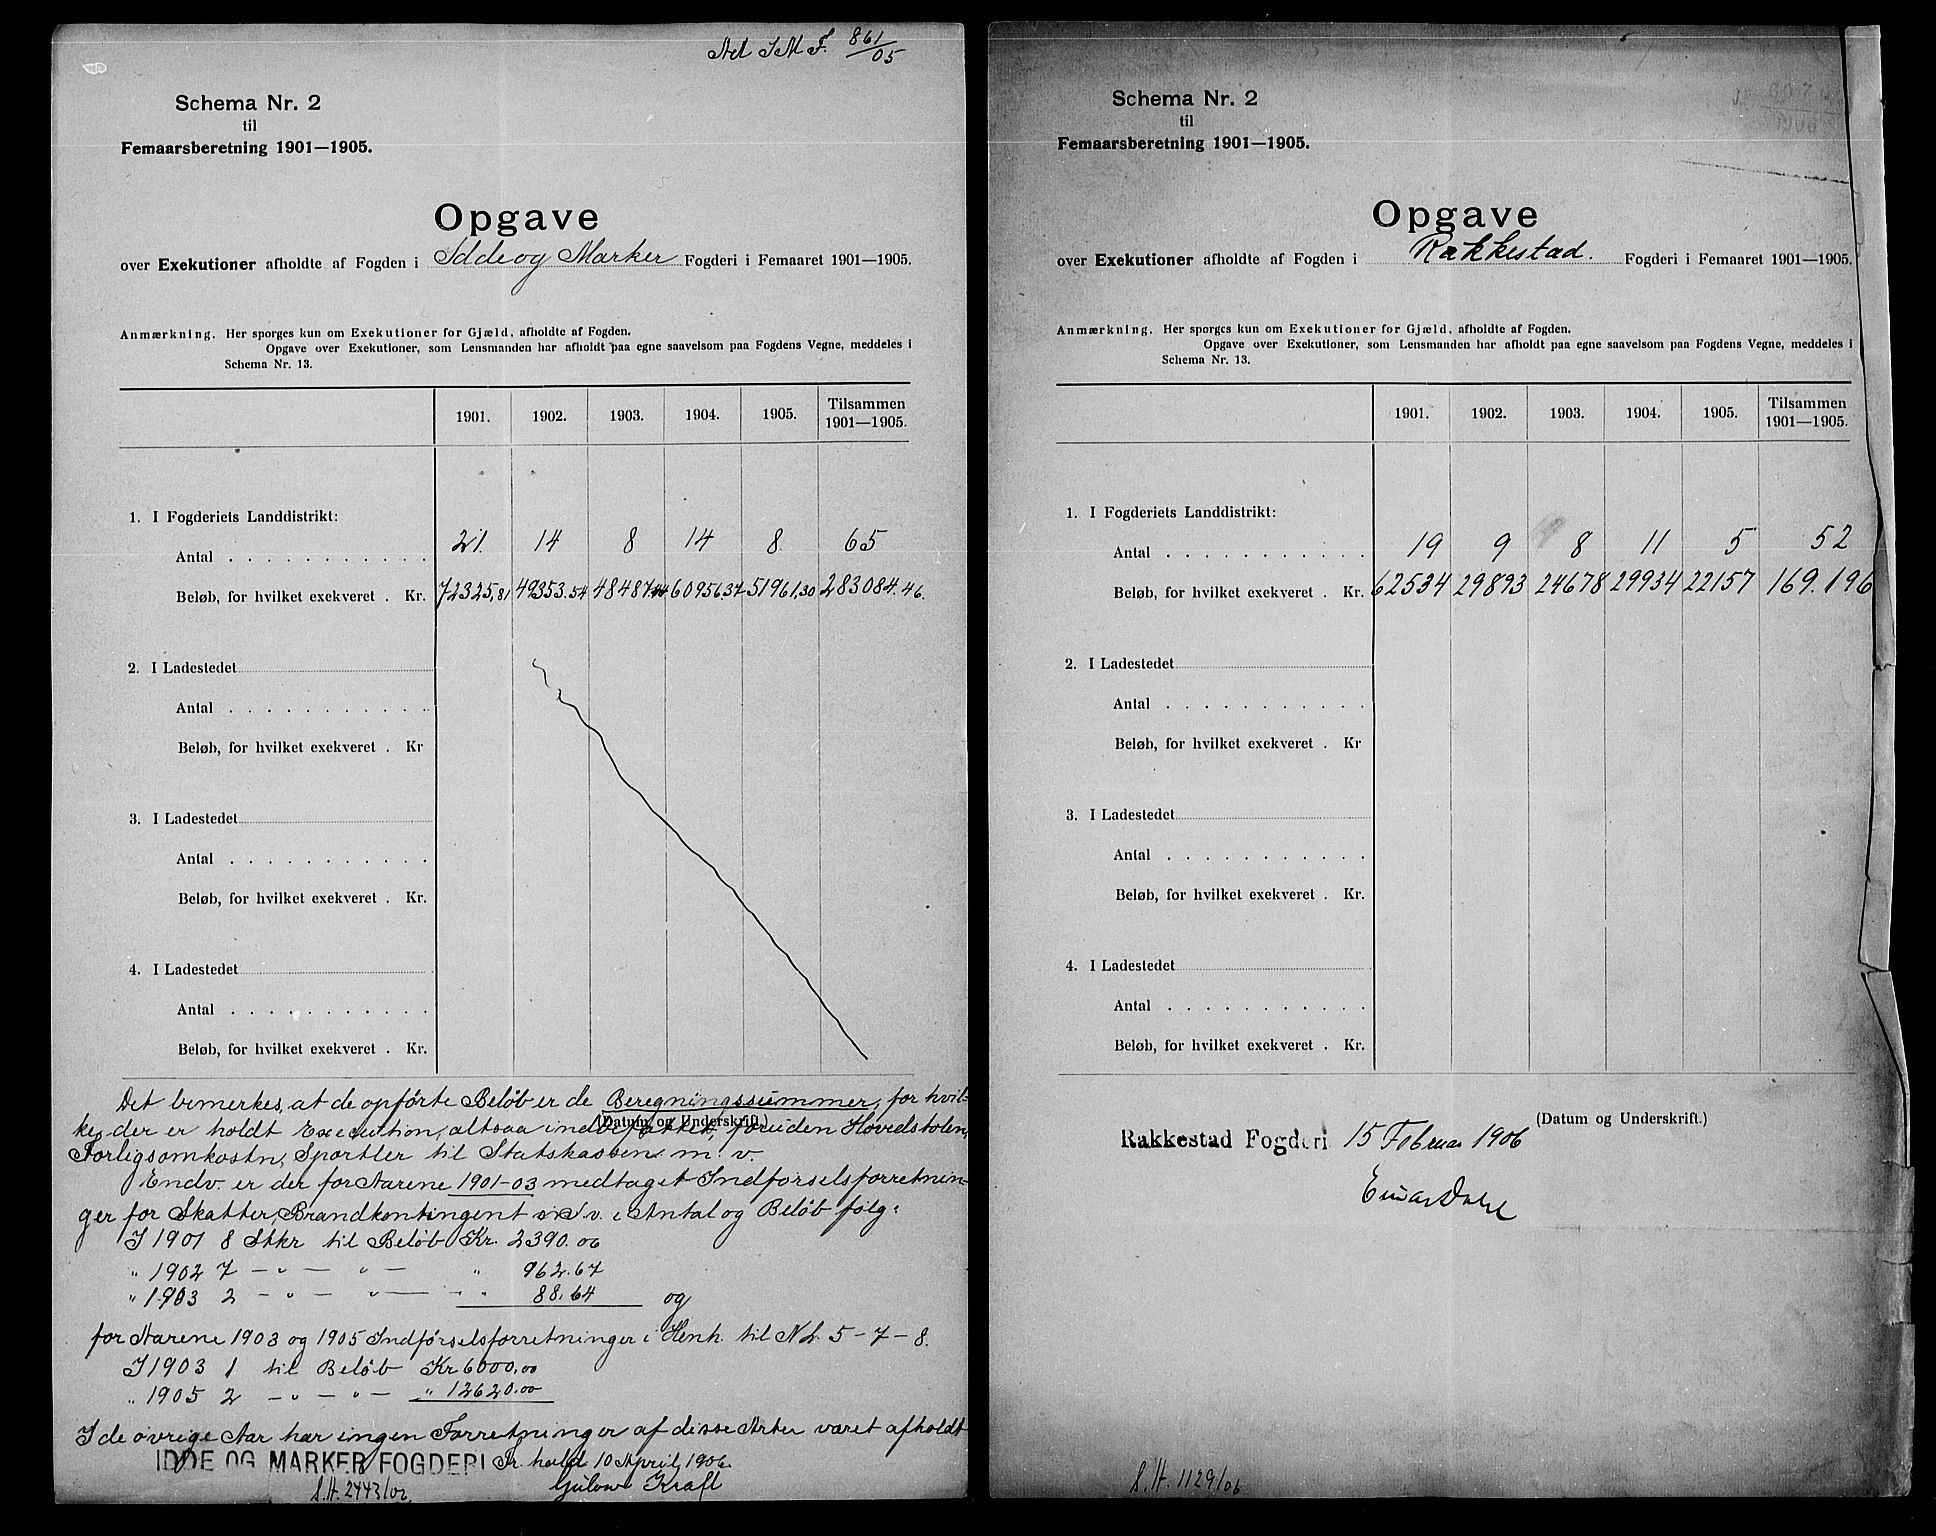 Ad I M F. 861/05
Schema Nr. 2
til
Femaarsberetning 1901—1905.
Opgave
over Exekutioner afholdte af Fogden i Idde og Marker Fogderi i Femaaret 1901—1905.
Anmærkning. Her spørges kun om Exekutioner for Gjæld, afholdte af Fogden.
Opgave over Exekutioner, som Lensmanden har afholdt paa egne saavelsom paa Fogdens Vegne, meddeles i
Schema Nr. 13.
1901. 1902. 1903. 1904. 1905. Tilsammen 1901—1905.
1. I Fogderiets Landdistrikt:
Antal 21. 14 8 14 8. 65
Beløb, for hvilket exekveret . Kr. 72325,81 49353.54 48487.44 60956.37 51961,30 283084.46.
2. I Ladestedet
Antal
Beløb, for hvilket exekveret . Kr
3. I Ladestedet
Antal
Beløb, for hvilket exekveret . Kr.
4. I Ladestedet
Antal
Beløb, for hvilket exekveret . Kr.
Det bemerkes, at de opførte Beløb er de Beregningssummer, for hvil-
(Datum og Underskrift.)
ke der er holdt Execution, altsaa indbefattet, foruden Hovedstolen,
Forligsomkostn, Sportler til Statskassen m. v.
Endv. er der for Aarene 1901-03 medtaget Indførselsforretnin-
ger for Skatter, Brandkontingent o s v. i Antal og Beløb følg:
I 1901 8 Stkr til Beløb Kr. 2390.06
" 1902 7 — " — " — " 962.67
" 1903 2 — " — " — " 88.64 og
for Aarene 1903 og 1905 Indførselsforretninger i Henh. til N L. 5-7-8.
I 1903 1 til Beløb Kr 6000,00
" 1905 2 — " — " — " 12620.00
I de øvrige Aar har ingen Forretninger af disse Arter været afholdt
IDDE OG MARKER FOGDERI Fr. hald 10 April 1906.
Kraft
S.H. 2443/02
Schema Nr. 2
til
Femaarsberetning 1901—1905.
Opgave
over Exekutioner afholdte af Fogden i Rakkestad. Fogderi i Femaaret 1901—1905.
Anmærkning. Her spørges kun om Exekutioner for Gjæld, afholdte af Fogden.
Opgave over Exekutioner, som Lensmanden har afholdt paa egne saavelsom paa Fogdens Vegne, meddeles i
Schema Nr. 13.
1901. 1902. 1903. 1904. 1905. Tilsammen 1901—1905.
1. I Fogderiets Landdistrikt:
Antal 19 9 8 11 5 52
Beløb, for hvilket exekveret . Kr. 62534 29893 24678 29934 22157 169.196
2. I Ladestedet
Antal
Beløb, for hvilket exekveret . Kr
3. I Ladestedet
Antal
Beløb, for hvilket exekveret . Kr.
4. I Ladestedet
Antal
Beløb, for hvilket exekveret . Kr.
(Datum og Underskrift.)
Rakkestad Fogderi 15 Februar 1906
Einar Dahl
S.H. 1129/06